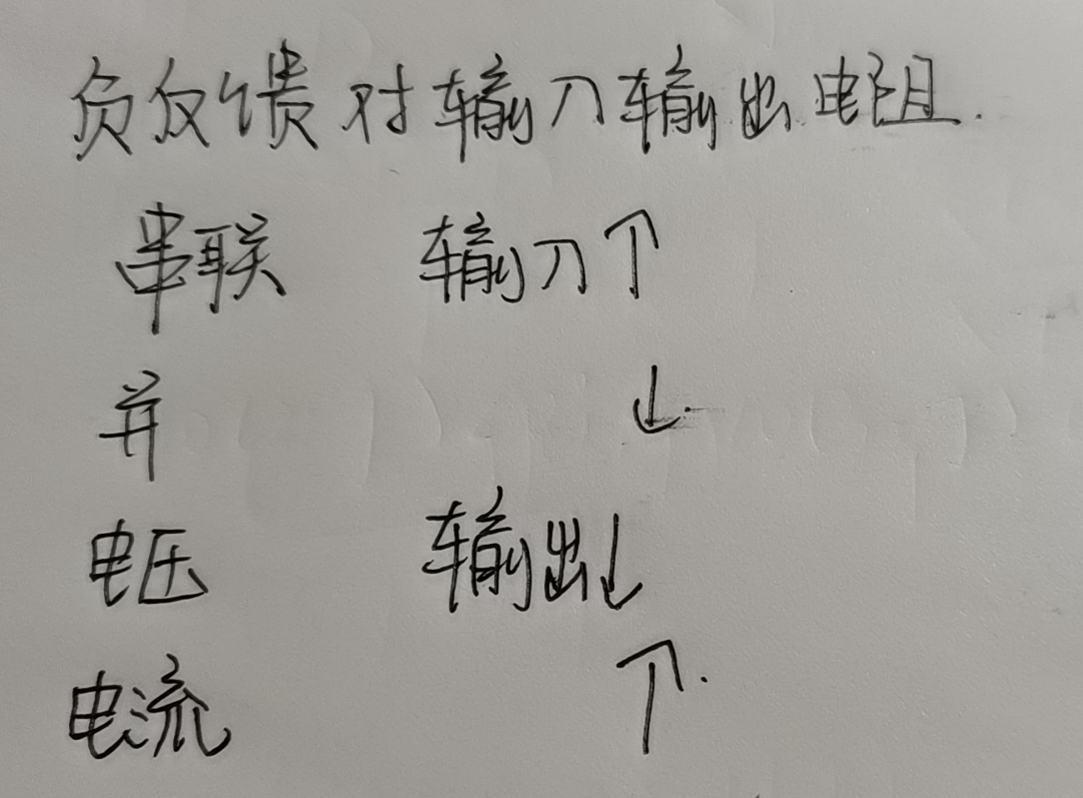 负反馈对输入输出电阻.
串联 输入↑
并 ↓.
电压 输出↓
电流 ↑.